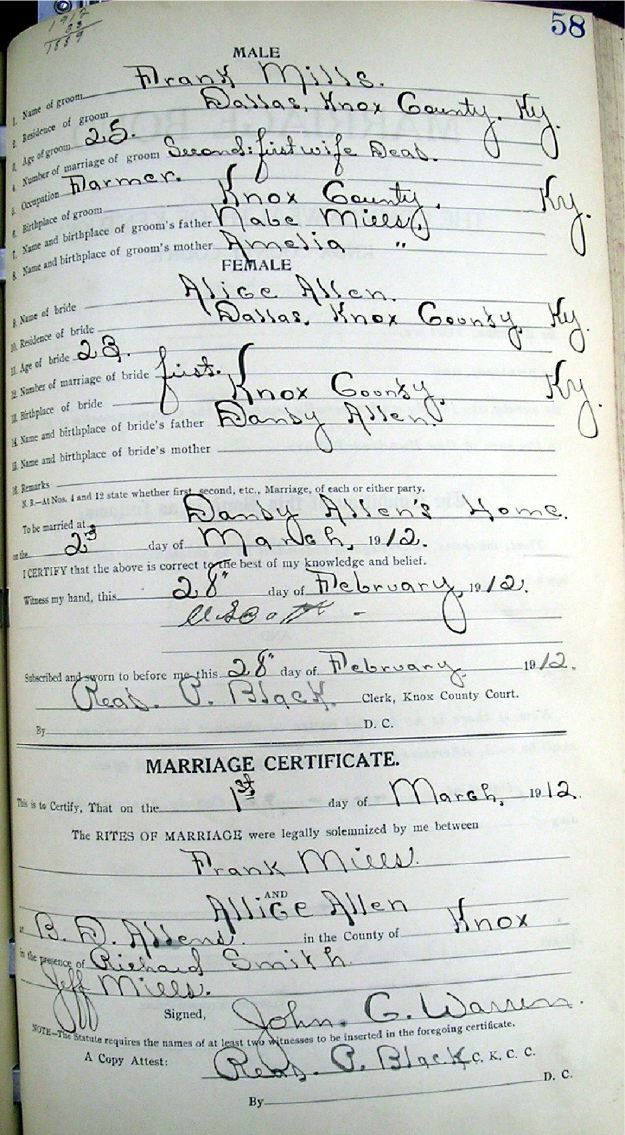 1912
23
1889
58
MALE
1. Name of groom Frank Mills.
2. Residence of groom Dallas, Knox County, Ky.
3. Age of groom 25.
4. Number of marriage of groom Second: first wife Dead.
5. Occupation Farmer.
6. Birthplace of groom Knox County, Ky.
7. Name and birthplace of groom's father Mabe Mills,
8. Name and birthplace of groom's mother Amelia "
FEMALE
9. Name of bride Alice Allen.
10. Residence of bride Dallas, Knox County, Ky.
11. Age of bride 23.
12. Number of marriage of bride first.
13. Birthplace of bride Knox County, Ky.
14. Name and birthplace of bride's father Danby Allen.
15. Name and birthplace of bride's mother
16. Remarks
N. B.—At Nos. 4 and 12 state whether first, second, etc., Marriage, of each or either party.
To be married at Danby Allen's Home.
on the 2nd day of March, 1912.
I CERTIFY that the above is correct to the best of my knowledge and belief.
Witness my hand, this 28" day of February, 1912.
Subscribed and sworn to before me this 28" day of February, 1912.
Read P. Black. Clerk, Knox County Court.
By D. C.
MARRIAGE CERTIFICATE.
This is to Certify, That on the 1st day of March, 1912.
The RITES OF MARRIAGE were legally solemnized by me between
Frank Mills.
AND
Allice Allen
at B. D. Allens. in the County of Knox
in the presence of Richard Smith.
Jeff Mills.
Signed, John. G. Warren.
NOTE—The Statute requires the names of at least two witnesses to be inserted in the foregoing certificate.
A Copy Attest: Read P. Black C. K. C. C.
By D. C.